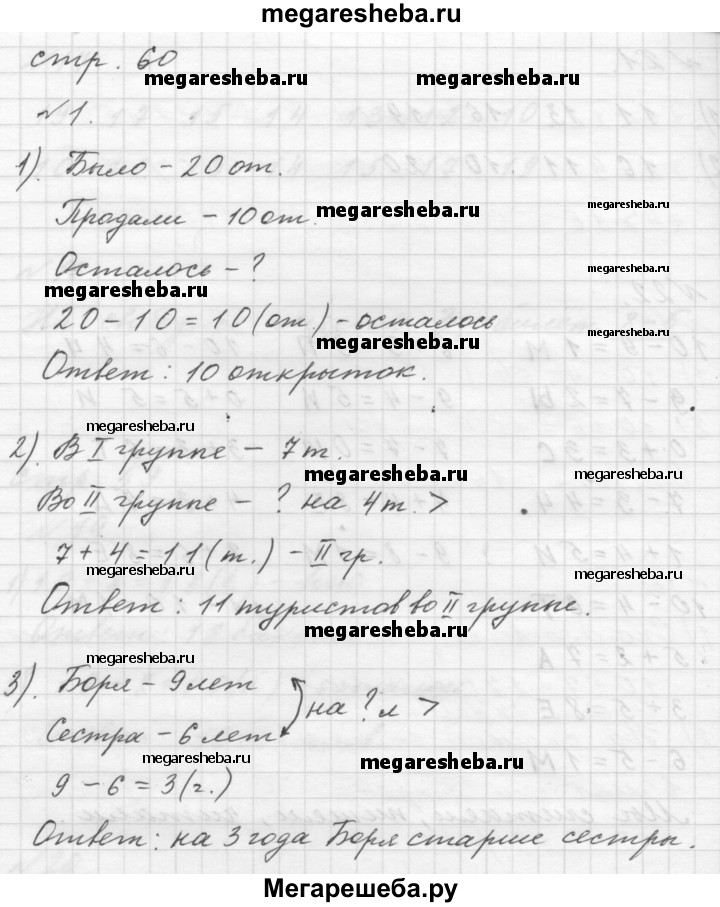 megaresheba.ru
стр. 60
megaresheba.ru megaresheba.ru
№1.
1). Было - 20 от.
Продали - 10 от.
megaresheba.ru megaresheba.ru
Осталось - ?
megaresheba.ru megaresheba.ru
20 - 10 = 10 (от.) - осталось
Ответ: 10 открыток.
megaresheba.ru
2). В I группе - 7 т.
megaresheba.ru megaresheba.ru
Во II группе - ? на 4 т. >
7 + 4 = 11 (т.) - II гр.
megaresheba.ru megaresheba.ru
Ответ: 11 туристов во II группе.
megaresheba.ru
megaresheba.ru
3). Боря - 9 лет
на ? л >
Сестра - 6 лет
megaresheba.ru megaresheba.ru
9 - 6 = 3 (г.)
Ответ: на 3 года Боря старше сестры.
Мегарешеба.ру